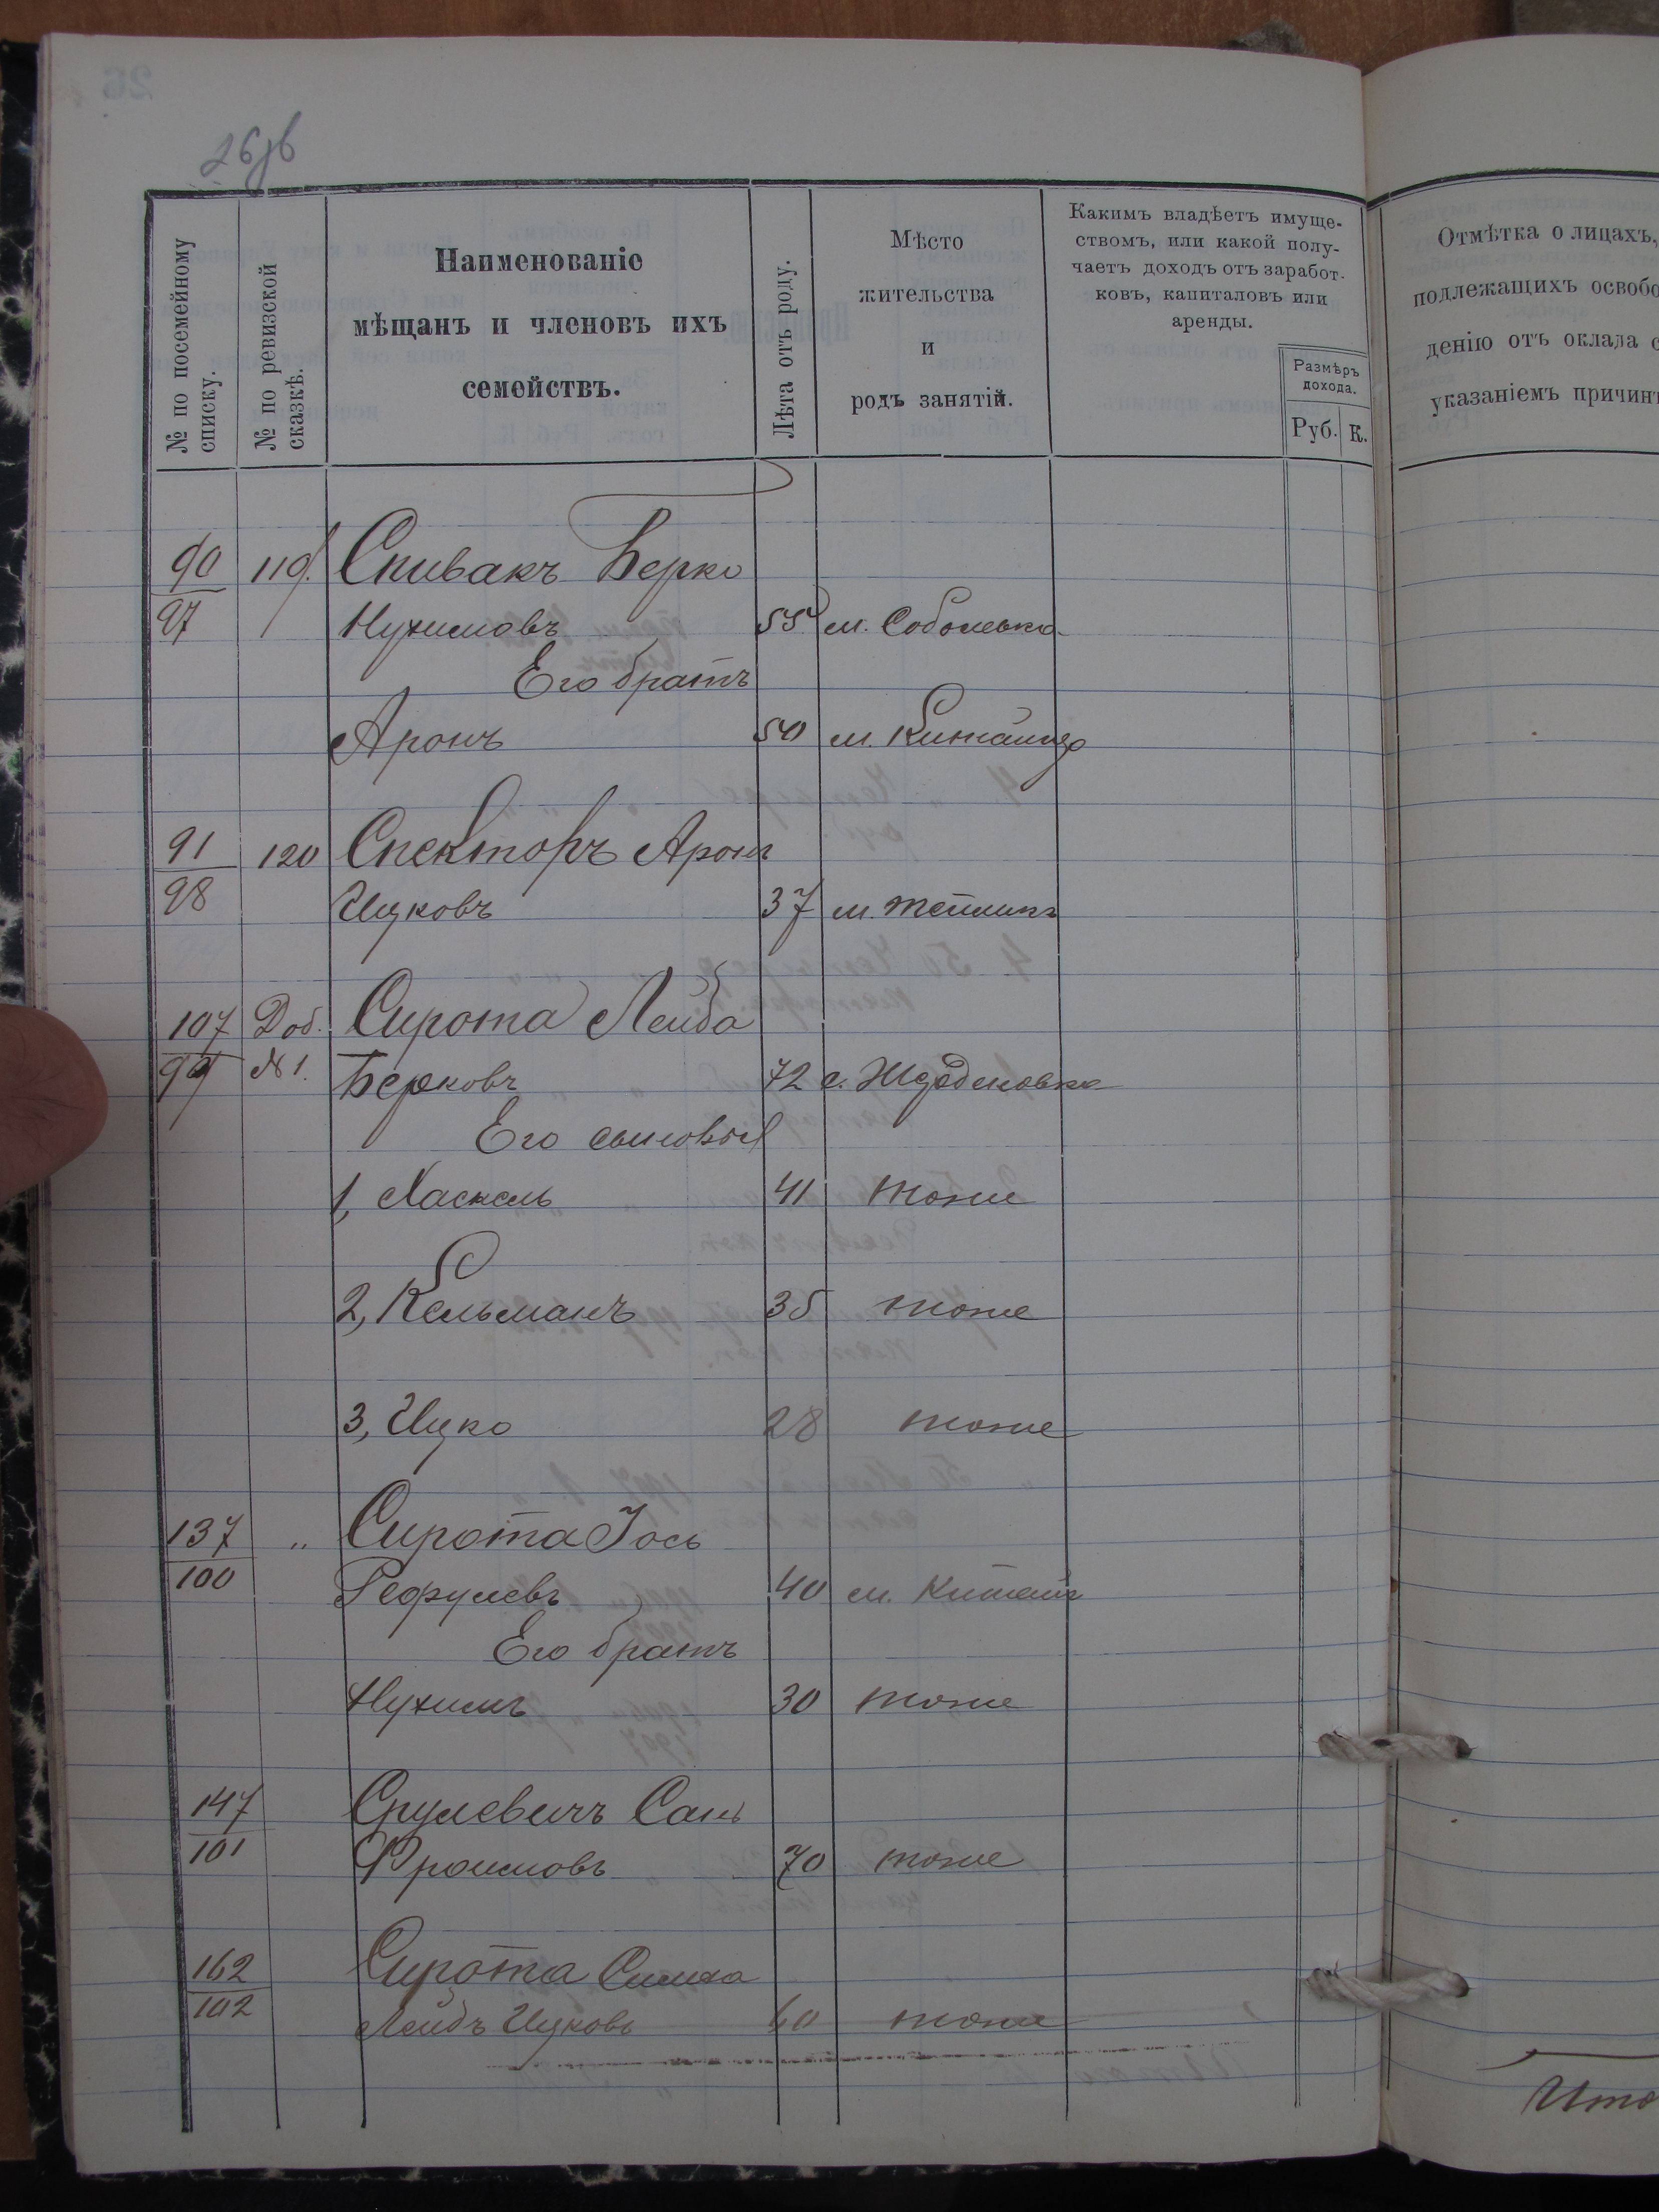 26об
№ по посемейному
списку.
№ по ревизской
сказкѣ.
Наименованіе
мѣщанъ и членовъ ихъ
семействъ.
Лѣта отъ роду.
Мѣсто
жительства
и
родъ занятій.
Какимъ владѣетъ имуще-
ствомъ, или какой полу-
чаетъ доходъ отъ заработ-
ковъ, капиталовъ или
аренды.
Размѣръ
дохода.
Руб. К.
Отмѣтка о лицахъ,
подлежащихъ освобо
денію отъ оклада с
указаніемъ причинъ
90 119. Спивакъ Берко
97 Нухимовъ 55 м. Соболевка
Его братъ
Аронъ 50 м.
91 120 Спекторъ Аронъ
98 Ицковъ 37 м. Тепликъ
107 Доб. Сирота Лейба
99 №1. Берковъ 72 с.
Его сыновья
1, Хаскель 41 тоже
2, Кельманъ 35 тоже
3, Ицко 28 тоже
137 „ Сирота Іось
100 40 м.
Его братъ
Нухимъ 30 тоже
147 Срулевичъ
101 Фроимовъ 70 тоже
162 Сирота Симха
102 Лейбъ Ицковъ 60 тоже
Ито